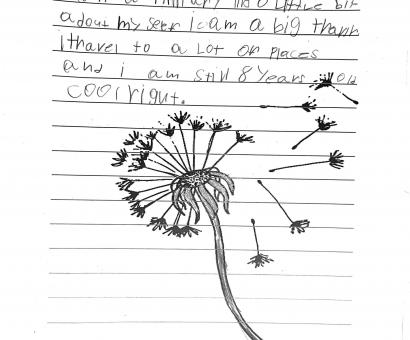 a Little bit
adout my Seer i cam a big thank
i thavel to a Lot OF PLaces
and i am Still 8 Years old
COOl right.